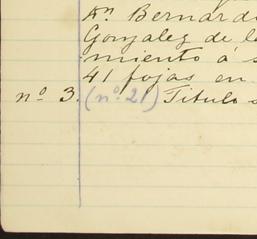 Dn Bernard
Gonzalez de l
miento á s
41 fojas en
nº 3. (nº 21) Titulo